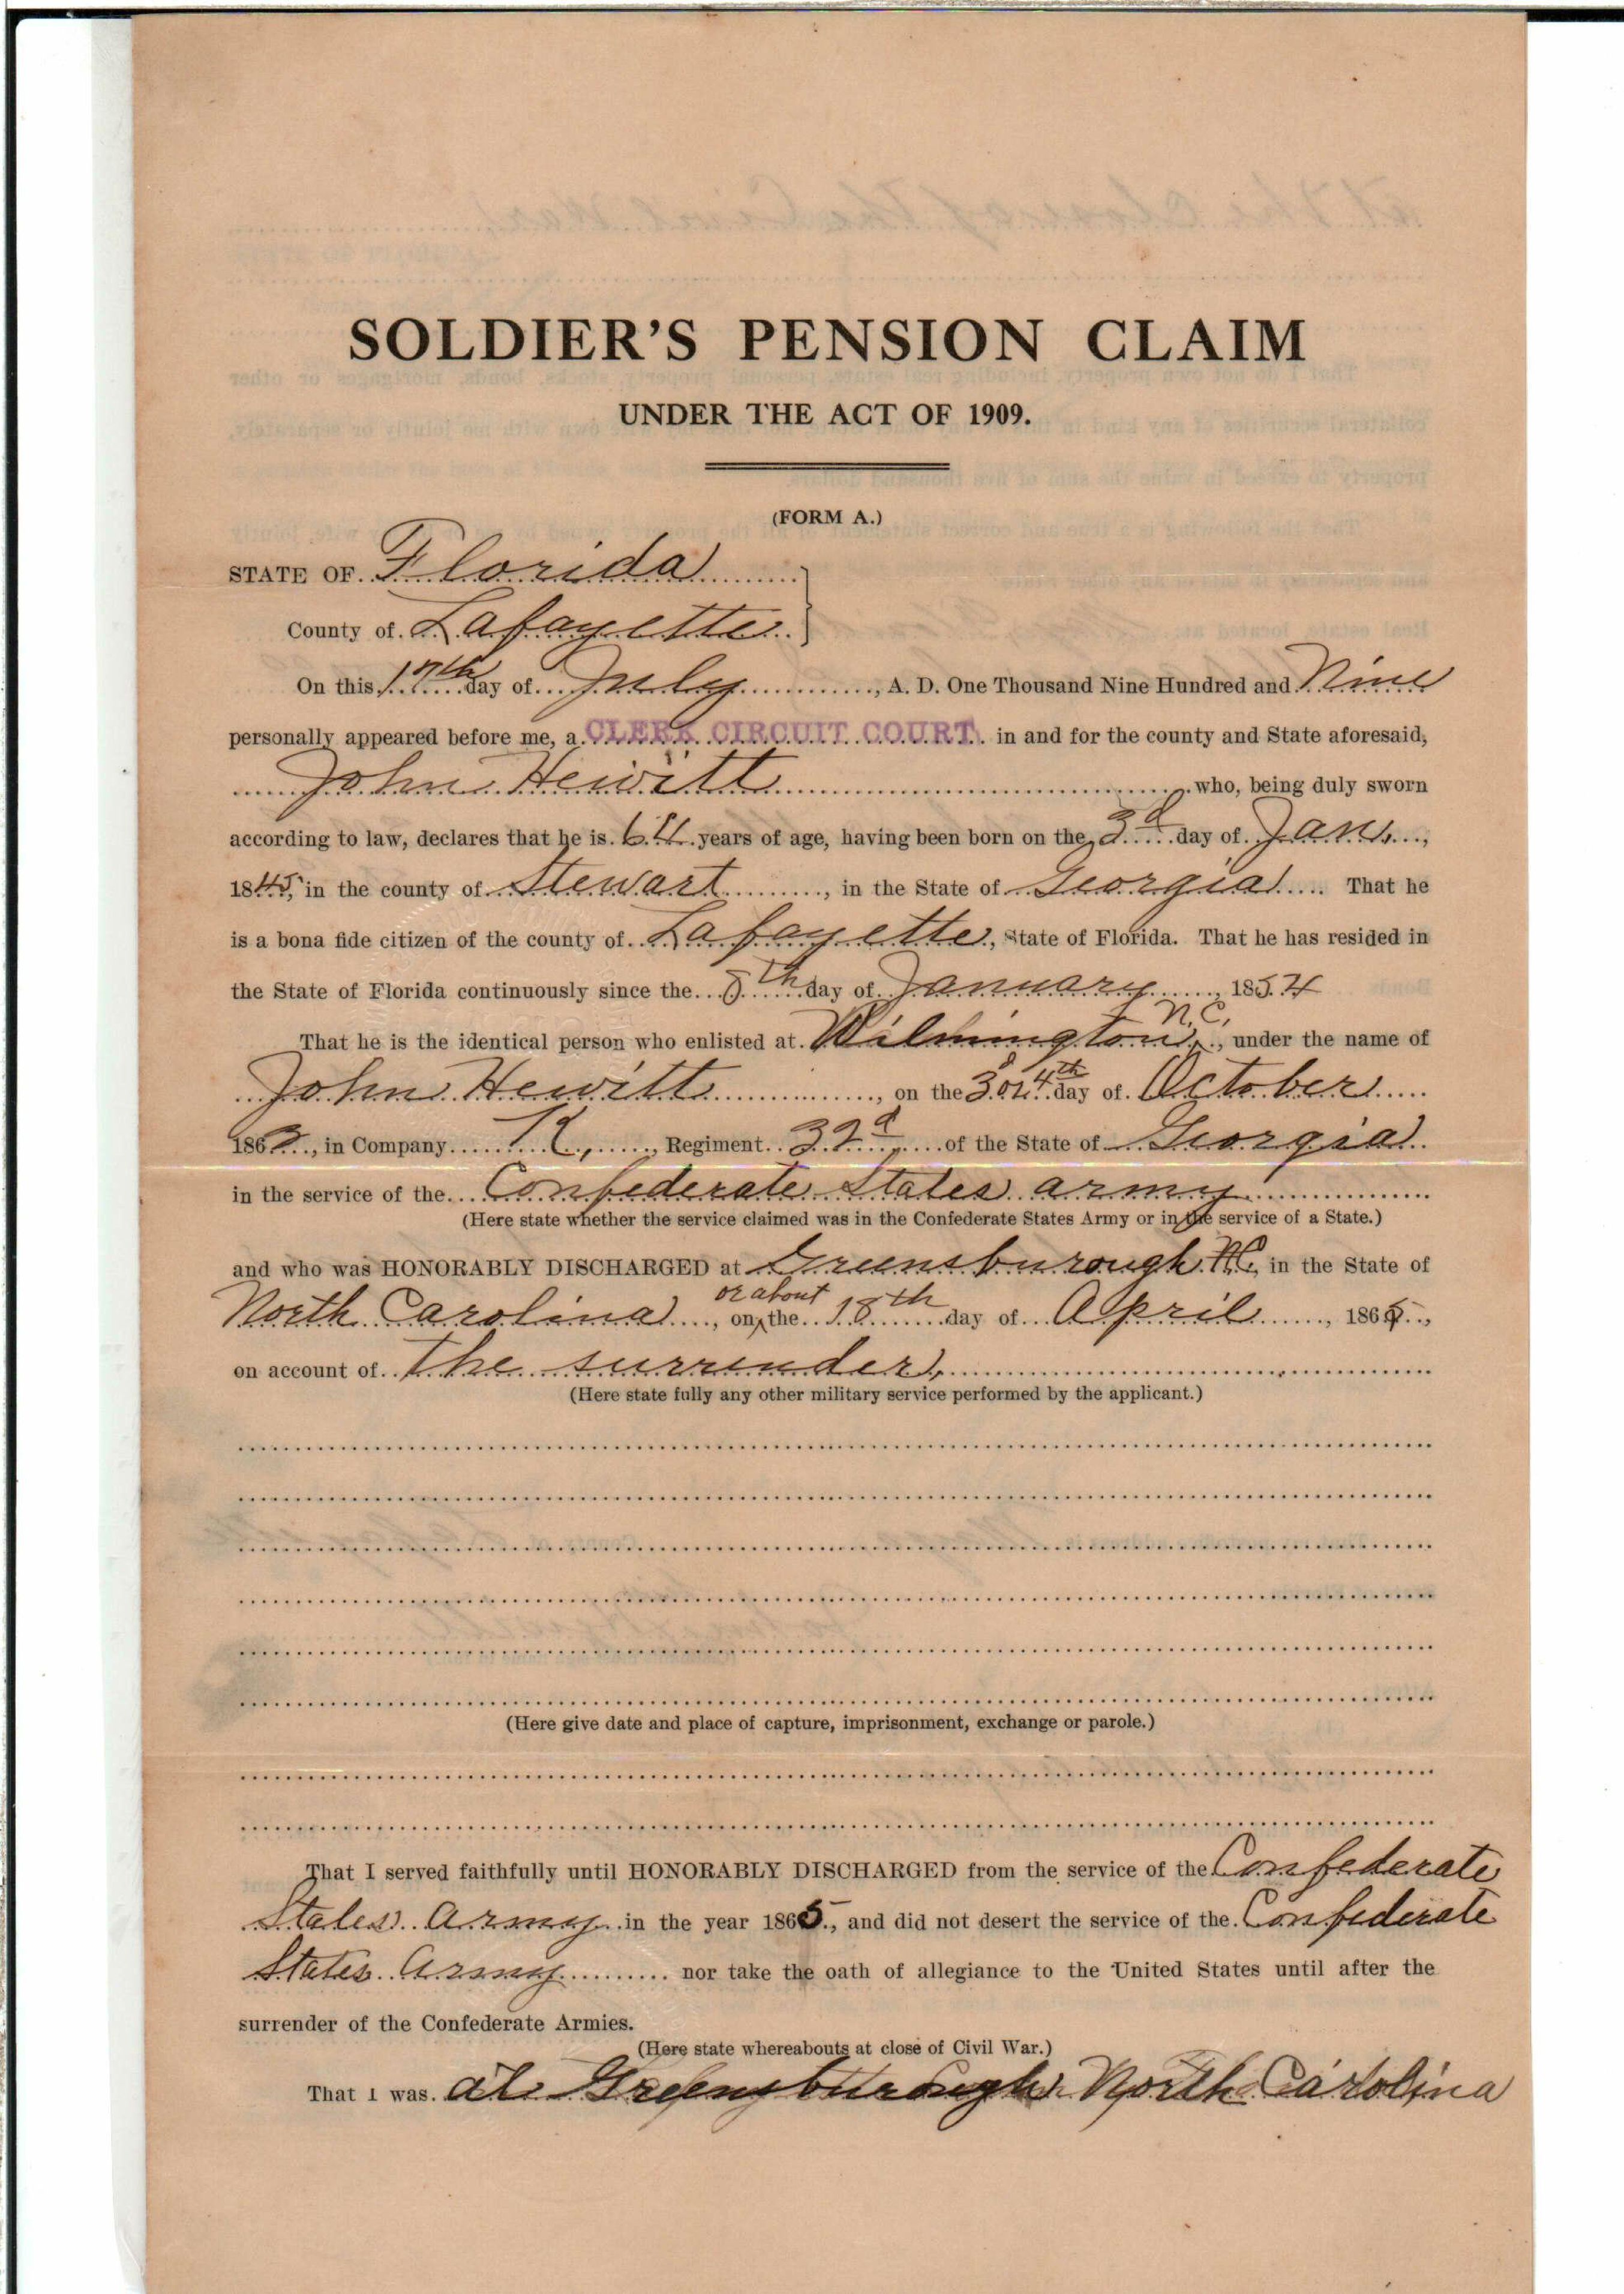 SOLDIER'S PENSION CLAIM
UNDER THE ACT OF 1909.
(FORM A.)
STATE OF Florida
County of Lafayette
On this 17th day of July, A. D. One Thousand Nine Hundred and Nine
personally appeared before me, a CLERK CIRCUIT COURT in and for the county and State aforesaid,
John Hewitt who, being duly sworn
according to law, declares that he is 64 years of age, having been born on the 3d day of Jan.,
1845, in the county of Stewart, in the State of Georgia That he
is a bona fide citizen of the county of Lafayette, State of Florida. That he has resided in
the State of Florida continuously since the 5th day of January, 1854
That he is the identical person who enlisted at Wilmington N.C., under the name of
John Hewitt, on the 3d or 4th day of October
186, in Company K, Regiment 32d of the State of Georgia
in the service of the Confederate States army
(Here state whether the service claimed was in the Confederate States Army or in the service of a State.)
and who was HONORABLY DISCHARGED at Greensburough N.C., in the State of
North Carolina, on or about the 18th day of April, 1865,
on account of the surrender,
(Here state fully any other military service performed by the applicant.)
(Here give date and place of capture, imprisonment, exchange or parole.)
That I served faithfully until HONORABLY DISCHARGED from the service of the Confederate
States Army in the year 1865, and did not desert the service of the Confederate
States Army nor take the oath of allegiance to the United States until after the
surrender of the Confederate Armies.
(Here state whereabouts at close of Civil War.)
That I was at Greensburough North Carolina